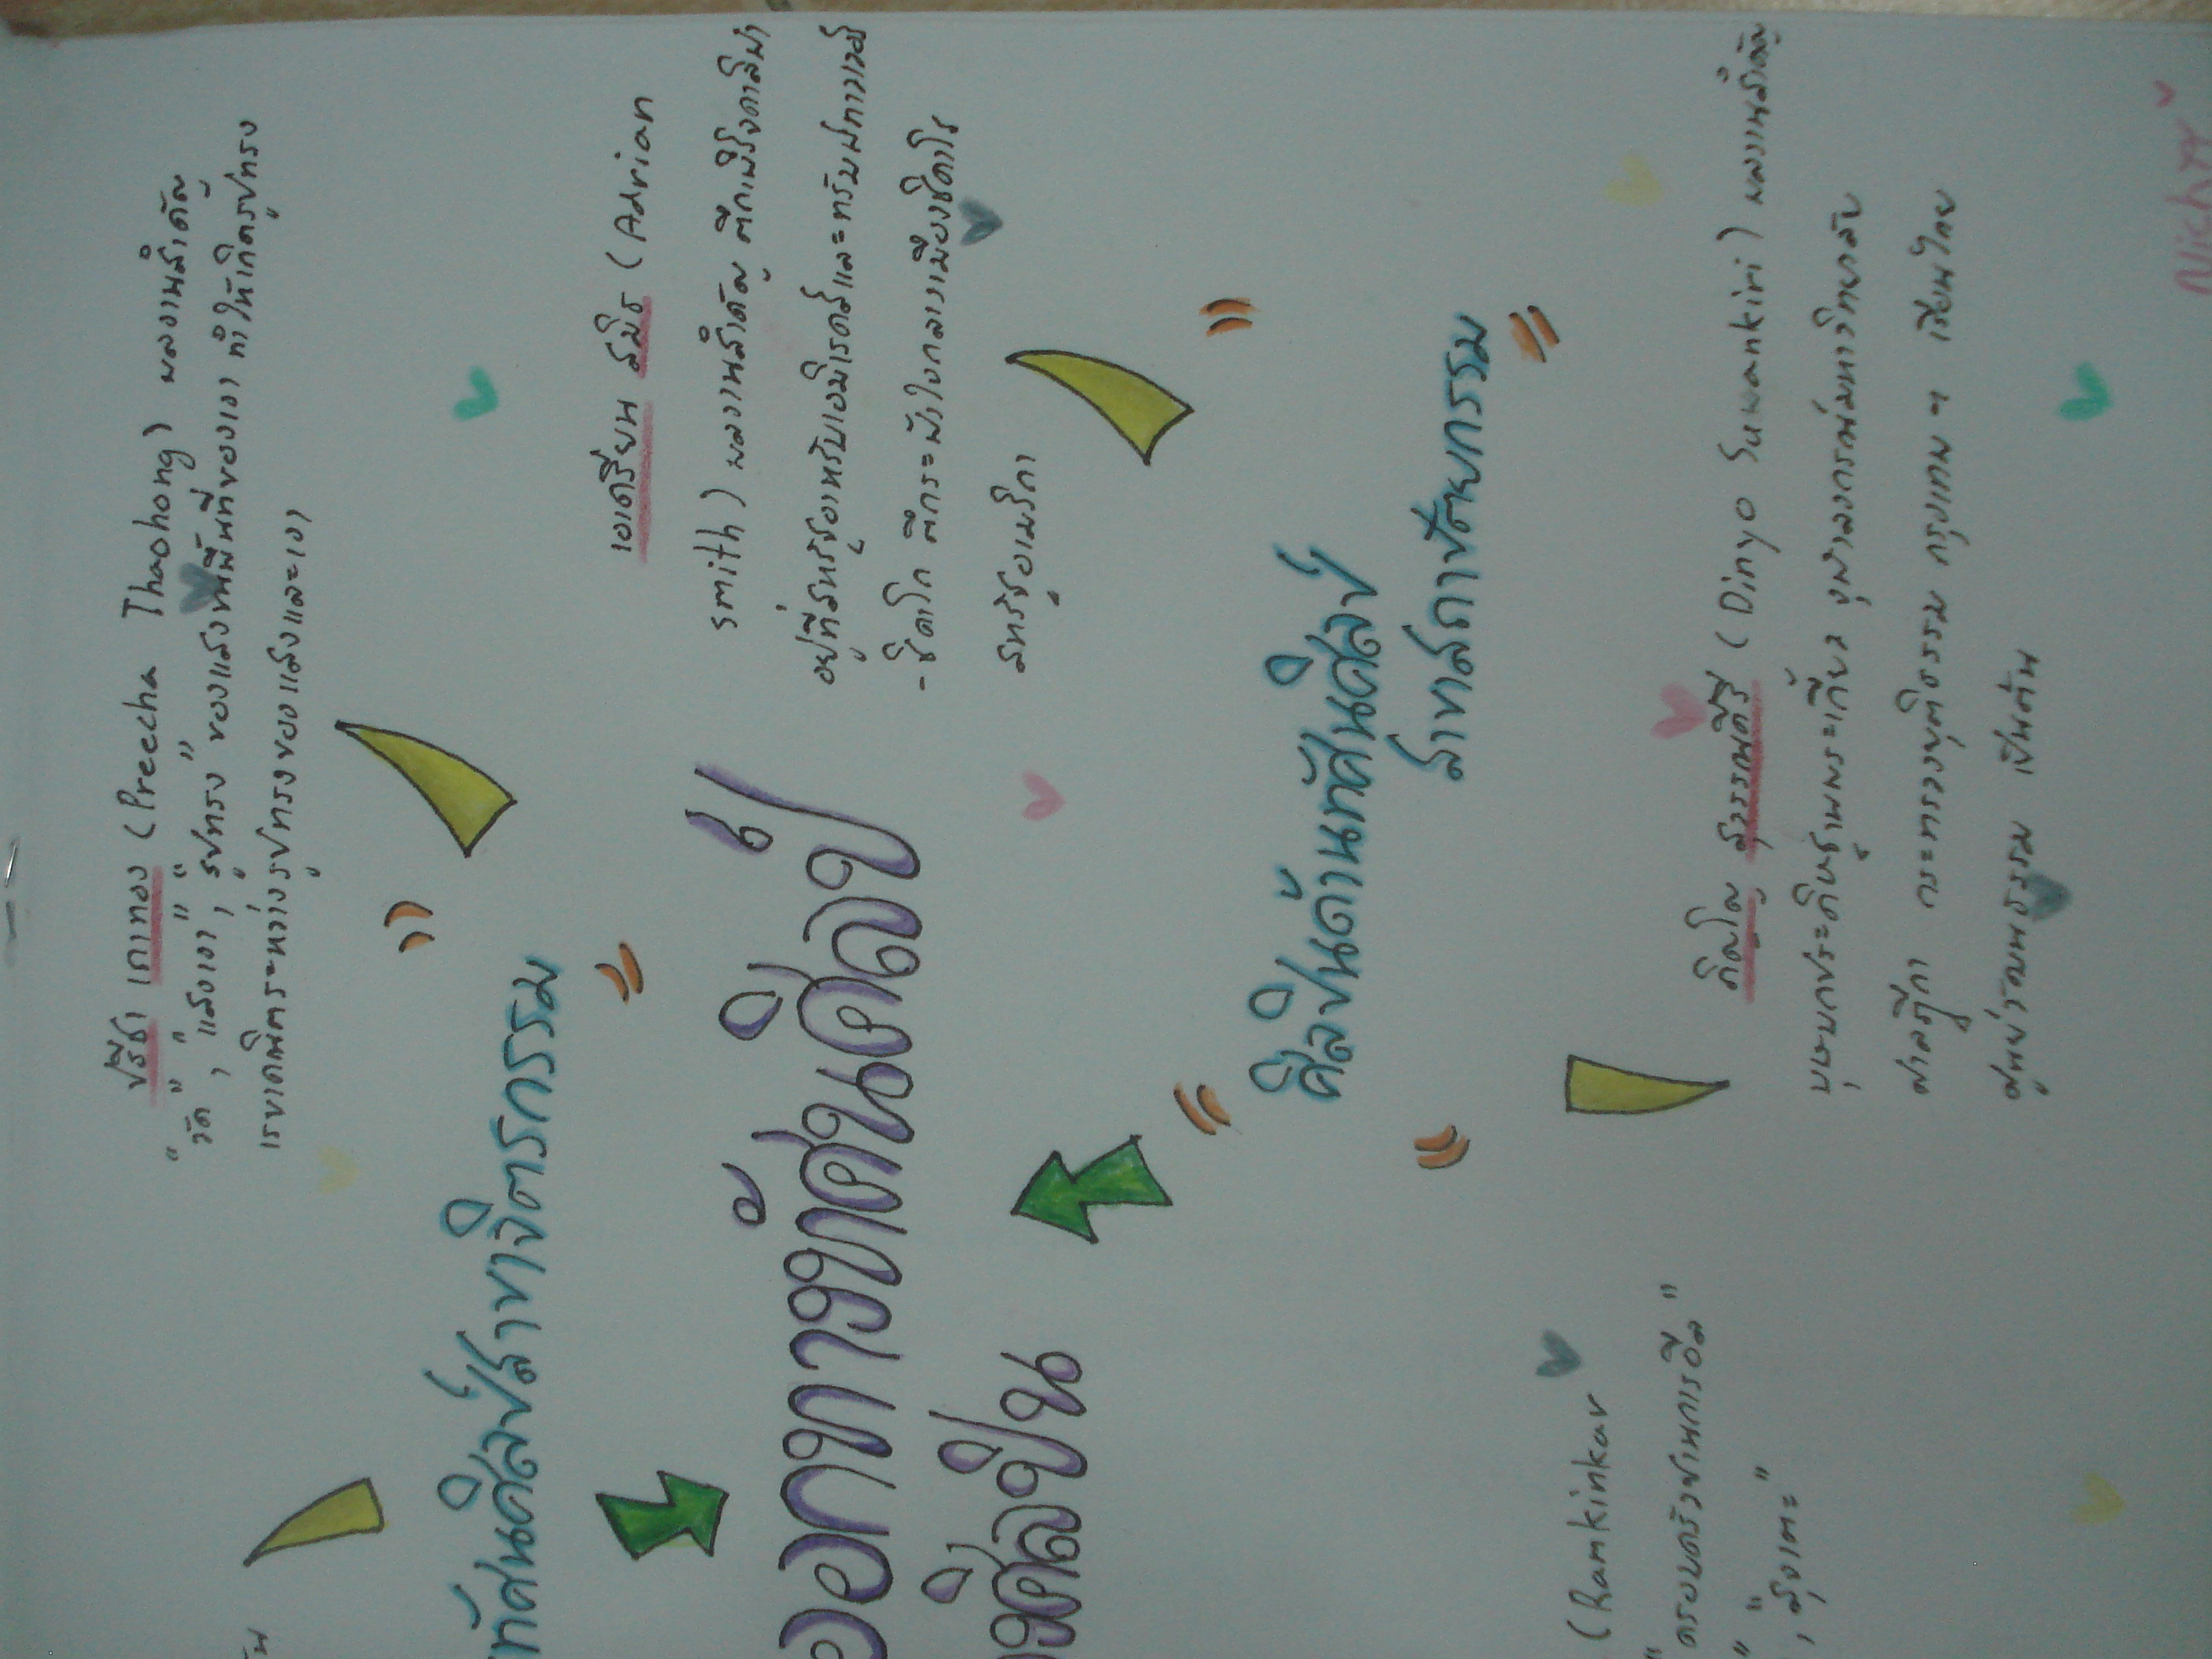 ปรีชา เถาทอง (Preecha Thaohong) ผลงานสำคัญ
"วัด" , "แสงเงา" , "รูปทรง" ของแสงพื้นที่ของเงา ทำให้เกิดรูปทรง
เรขาคณิตระหว่างรูปทรงของแสงและเงา
ทัศนศิลป์สาขาจิตรกรรม
เอเดรียน สมิธ (Adrian
smith) ผลงานสำคัญ ตึกเบิร์จดาลิฟา
อยู่ที่สหรัฐอาหรับเอมิเรตส์และทรัมป์ทาวเวอร์
-ชิคาโก ตึกระฟ้าใจกลางเมืองชิคาโก
สหรัฐอเมริกา
ออกทางทัศนศิลป์
ศิลปิน
ศิลปินด้านทัศนศิลป์
สาขาสถาปัตยกรรม
(Ramkinkar
"ครอบครัวซานการอีล"
, สุจาตะ"
ดิญโญ สุวรรณคีรี (Dinyo Suwankiri) ผลงานสำคัญ
บุษบกประดิษฐานพระเกี้ยว จุฬาลงกรณ์มหาวิทยาลัย
ศาลฎีกา กระทรวงยุติธรรม กรุงเทพ ฯ เรือนไทย
ศูนย์วัฒนธรรม เป็นต้น